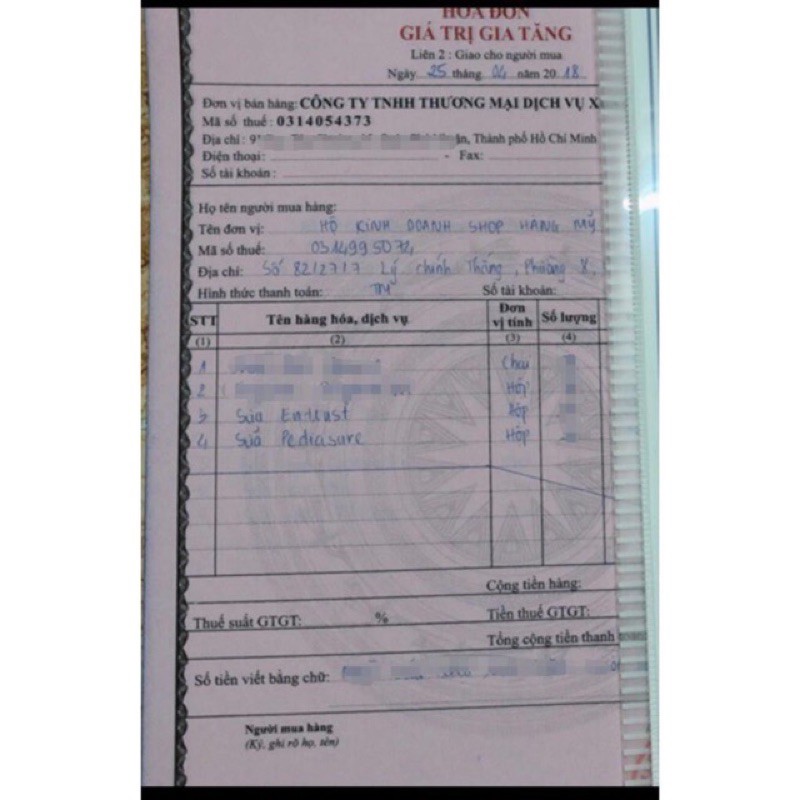 HÓA ĐƠN
GIÁ TRỊ GIA TĂNG
Liên 2 : Giao cho người mua
Ngày 25 tháng 04 năm 2018
Đơn vị bán hàng: CÔNG TY TNHH THƯƠNG MẠI DỊCH VỤ X
Mã số thuế : 0314054373
Địa chỉ : Thành phố Hồ Chí Minh
Điện thoại: - Fax:
Số tài khoản :
Họ tên người mua hàng:
Tên đơn vị: HỘ KINH DOANH SHOP HÀNG MỸ
Mã số thuế: 0314995072
Địa chỉ: Số 82/27/7 Lý chính Thắng, Phường 8,
Hình thức thanh toán: TM Số tài khoản:
STT Tên hàng hóa, dịch vụ Đơn vị tính Số lượng
(1) (2) (3) (4)
1 Chai
2 Hộp
3 Sữa Hộp
4 Sữa Pediasure Hộp
Cộng tiền hàng:
Thuế suất GTGT: % Tiền thuế GTGT:
Tổng cộng tiền thanh
Số tiền viết bằng chữ:
Người mua hàng
(Ký, ghi rõ họ, tên)